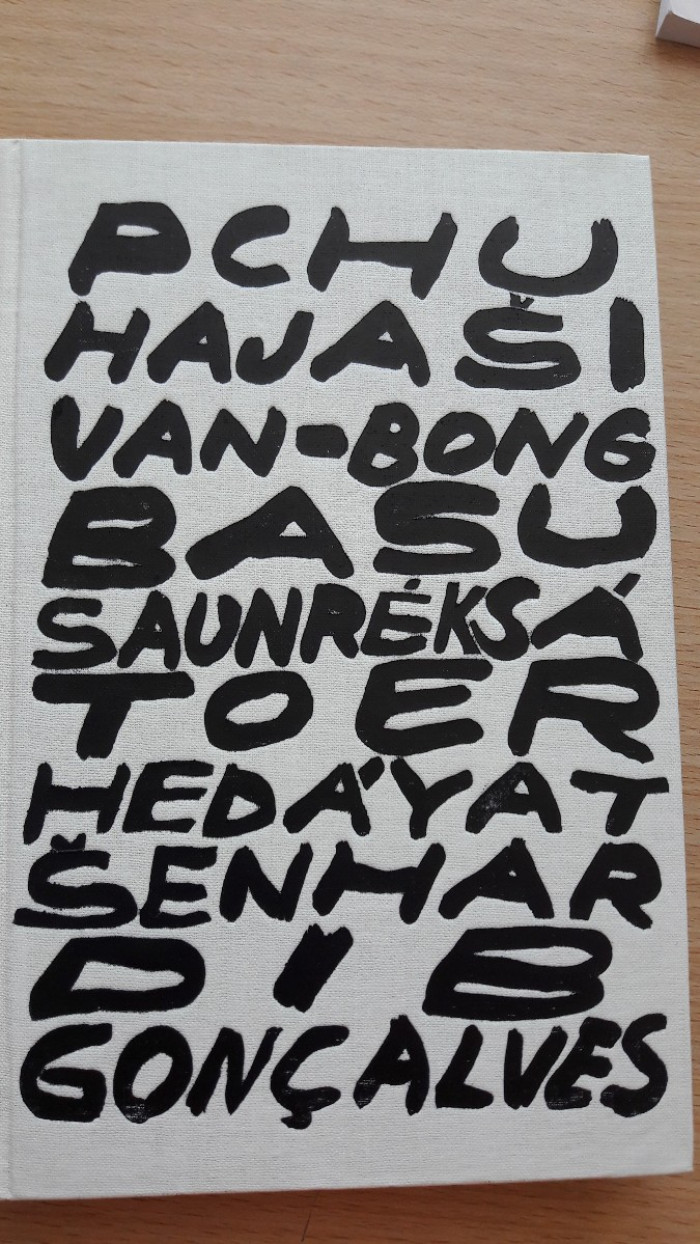 PCHU
HAJAŠI
VAN-BONG
BASU
SAUNRÉKSÁ
TOER
HEDÁYAT
ŠENHAR
DIB
GONÇALVES